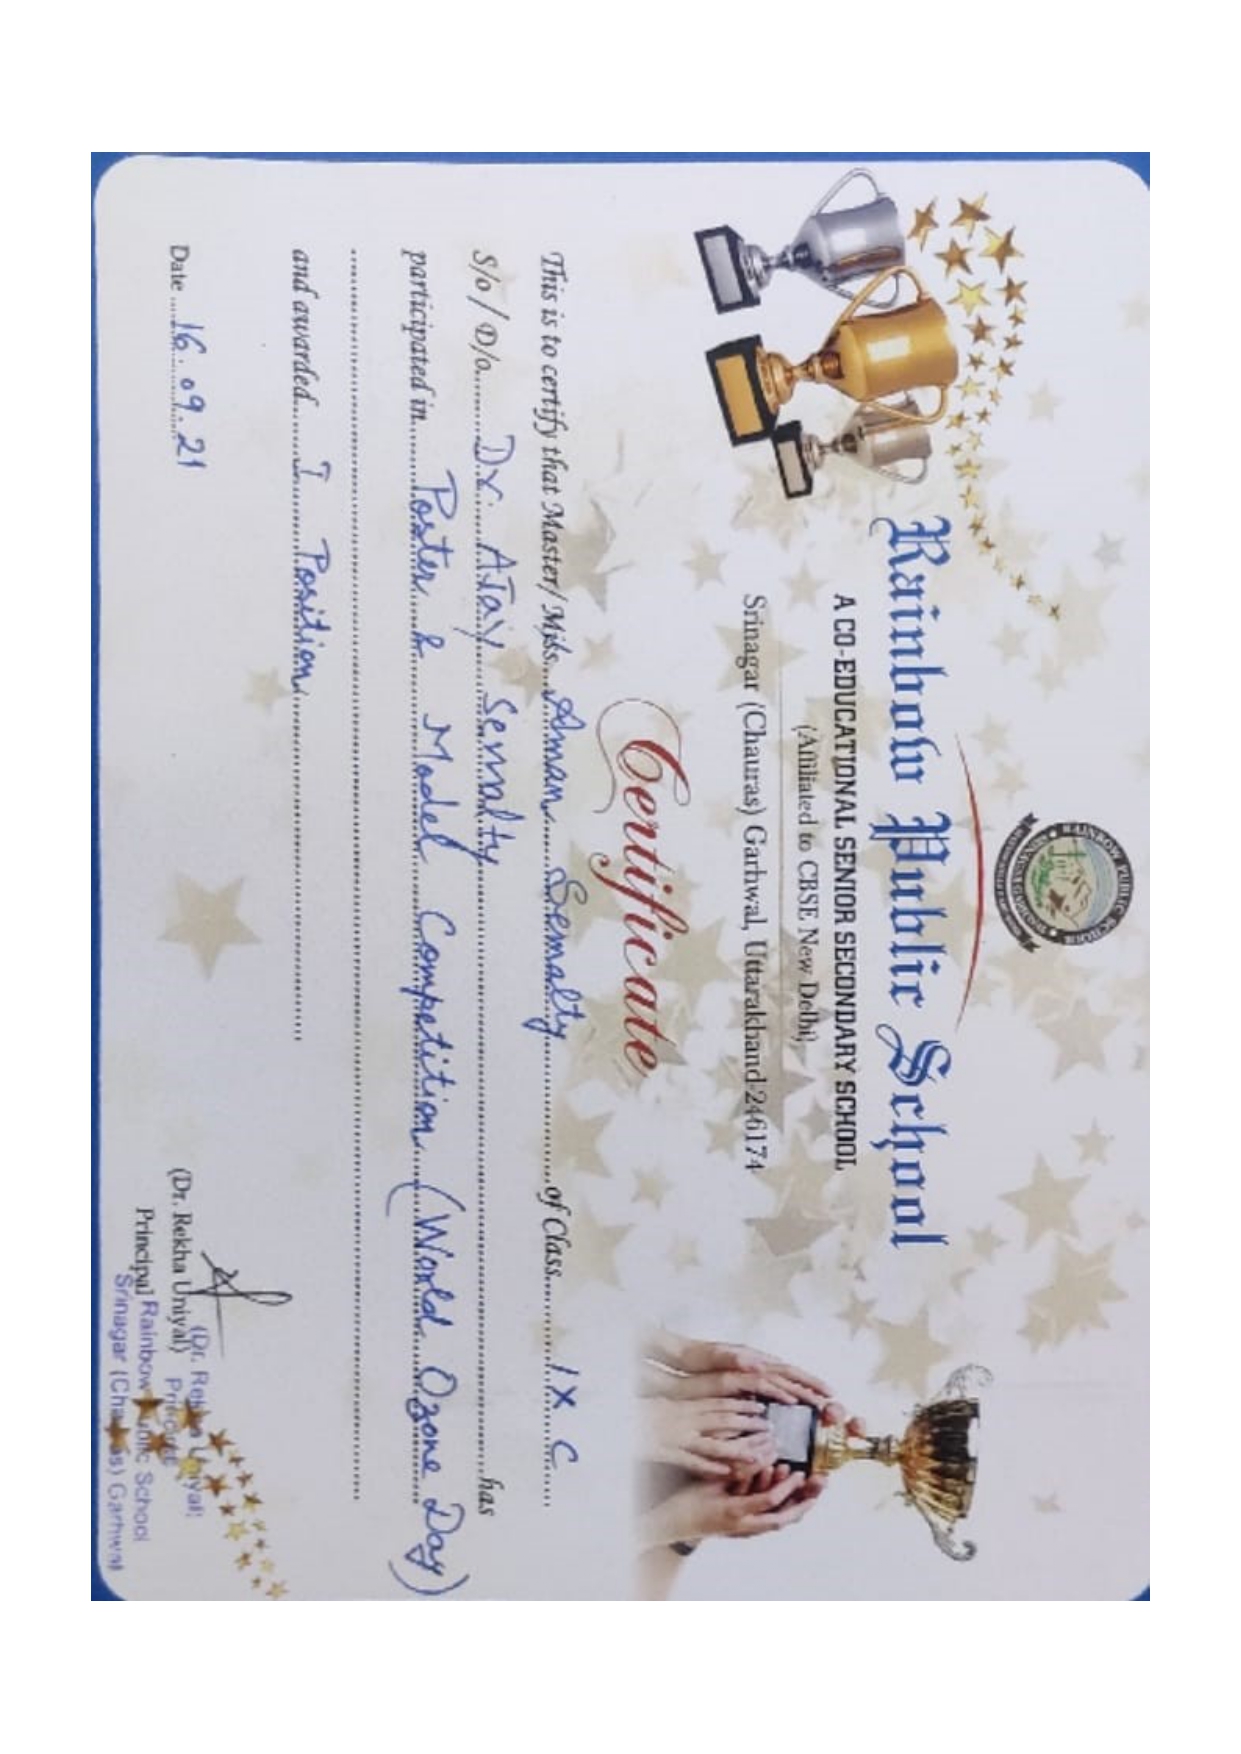 RAINBOW PUBLIC SCHOOL
SRINAGAR GARHWAL
Rainbow Public School
A CO-EDUCATIONAL SENIOR SECONDARY SCHOOL
(Affiliated to CBSE New Delhi)
Srinagar (Chauras) Garhwal, Uttarakhand-246174
Certificate
This is to certify that Master/ Miss Aman Semalty of Class IX C
S/o / D/o Dr. AJay Semalty has
participated in Poster & Model Competition (World Ozone Day)
and awarded I Position
Date 16.09.21
(Dr. Rekha Uniyal)
Principal
(Dr. Rekha Uniyal)
Principal
Rainbow Public School
Srinagar (Chauras) Garhwal